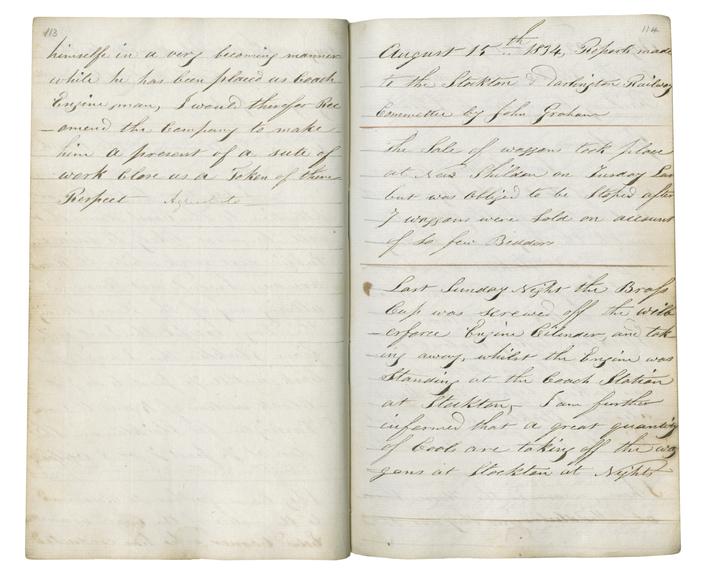 113
himselfe in a very becoming manner
while he has been placed as Coach
Engine man, I would therefor Rec
-omend the Company to make
him a present of a sute of
work Close as a Token of there
Respect Agreed to
114
August 15th 1834, Reports made
to the Stockton & Darlington Railway
Committee by John Graham
The Sale of waggons took place
at New Shildon on Tuesday Last
but was obliged to be Stoped after
7 waggons were Sold on account
of So few Bidders
Last Sunday Night the Brass
Cup was screwed off the Wilb
erforce Engine Cilender, and tak
ing away, whilst the Engine was
Standing at the Coach Station
at Stockton, I am further
informed that a great quantity
of Coals are taking off the wag
gons at Stockton at Nights